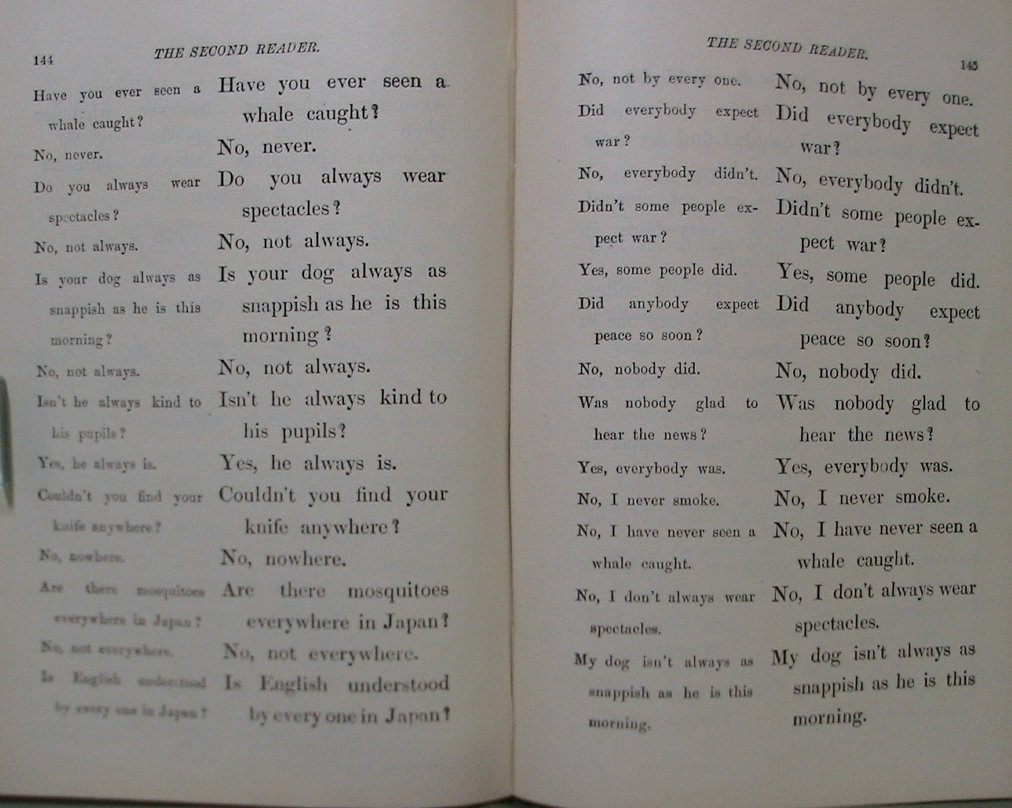 144
THE SECOND READER.
Have you ever seen a
whale caught?
No, never.
Do you always wear
spectacles?
No, not always.
Is your dog always as
snappish as he is this
morning?
No, not always.
Isn't he always kind to
his pupils?
Yes, he always is.
Couldn't you find your
knife anywhere?
No, nowhere.
Are there mosquitoes
everywhere in Japan?
No, not everywhere.
Is English understood
by every one in Japan?
Have you ever seen a
whale caught?
No, never.
Do you always wear
spectacles?
No, not always.
Is your dog always as
snappish as he is this
morning?
No, not always.
Isn't he always kind to
his pupils?
Yes, he always is.
Couldn't you find your
knife anywhere?
No, nowhere.
Are there mosquitoes
everywhere in Japan?
No, not everywhere.
Is English understood
by every one in Japan?
THE SECOND READER.
145
No, not by every one.
Did everybody expect
war?
No, everybody didn't.
Didn't some people ex-
pect war?
Yes, some people did.
Did anybody expect
peace so soon?
No, nobody did.
Was nobody glad to
hear the news?
Yes, everybody was.
No, I never smoke.
No, I have never seen a
whale caught.
No, I don't always wear
spectacles.
My dog isn't always as
snappish as he is this
morning.
No, not by every one.
Did everybody expect
war?
No, everybody didn't.
Didn't some people ex-
pect war?
Yes, some people did.
Did anybody expect
peace so soon?
No, nobody did.
Was nobody glad to
hear the news?
Yes, everybody was.
No, I never smoke.
No, I have never seen a
whale caught.
No, I don't always wear
spectacles.
My dog isn't always as
snappish as he is this
morning.